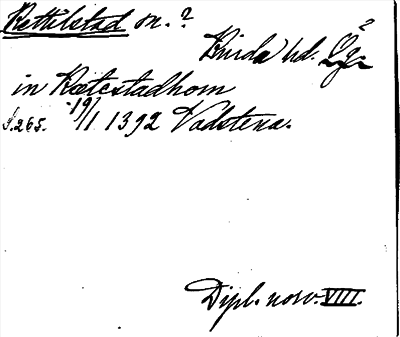 Kettilstad sn. ?
Kinda hd. Ög.
in Kætestadhom
S. 265. 19/1 1392 Vadstena.
Dipl. norv. VIII.